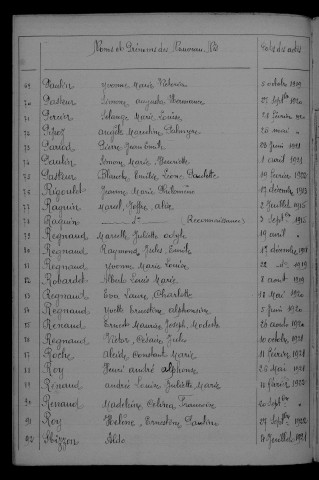 Noms et Prénoms des Nouveau Nés Dates des actes
69 Paulin Yvonne Marie Victorine 5 octobre 1919
70 Pasteur Simone Augusta Hermance 27 Sept^bre 1920
71 Perrin Solange Marie Louise 21 Février 1920
72 Argèle Marceline 20 mai
73 Pierre Jean Emile 03 Juin 1921
74 Paulin Simone Marie Henriette 1 avril 1921
75 Pasteur Blanche Emilie Léone Paulette 19 Février 1922
76 Rigoulot Jeanne Marie Philomène 17 décembre 1915
77 Raguin Marcel, Joffre, Alix 2 Juillet 1915
78 Raguin d° (Reconnaissance) 3 Sept^bre 1915
79 Regnaud Marcelle Juliette 19 avril
80 Regnaud Raymond Jules Emile 1er décembre 1918
81 Regnaud Yvonne Marie Louise 22 d° 1919
82 Robardet Albert Louis Marie 8 août 1919
83 Regnaud Eva Laure Charlotte 12 Mai 1920
84 Regnaud Yvette Ernestine Alphonsine 5 Juin 1920
85 Renaud Ernest Maurice Joseph Modeste 26 août 1920
86 Regnaud Victor Césaire Jules 10 octobre 1921
87 Roche Alcide, Constant Marie 11 Février 1921
88 Roy Henri André Alphonse 28 Mai 1921
89 Renaud André Louise Juliette Marie 10 février 1922
90 Renaud Madeleine Célina Françoise 20 Sept^bre
91 Roy Hélène Ernestine Pauline 27 Sept^bre 1922
92 Sbizzon Aldo 4 Juillet 1921